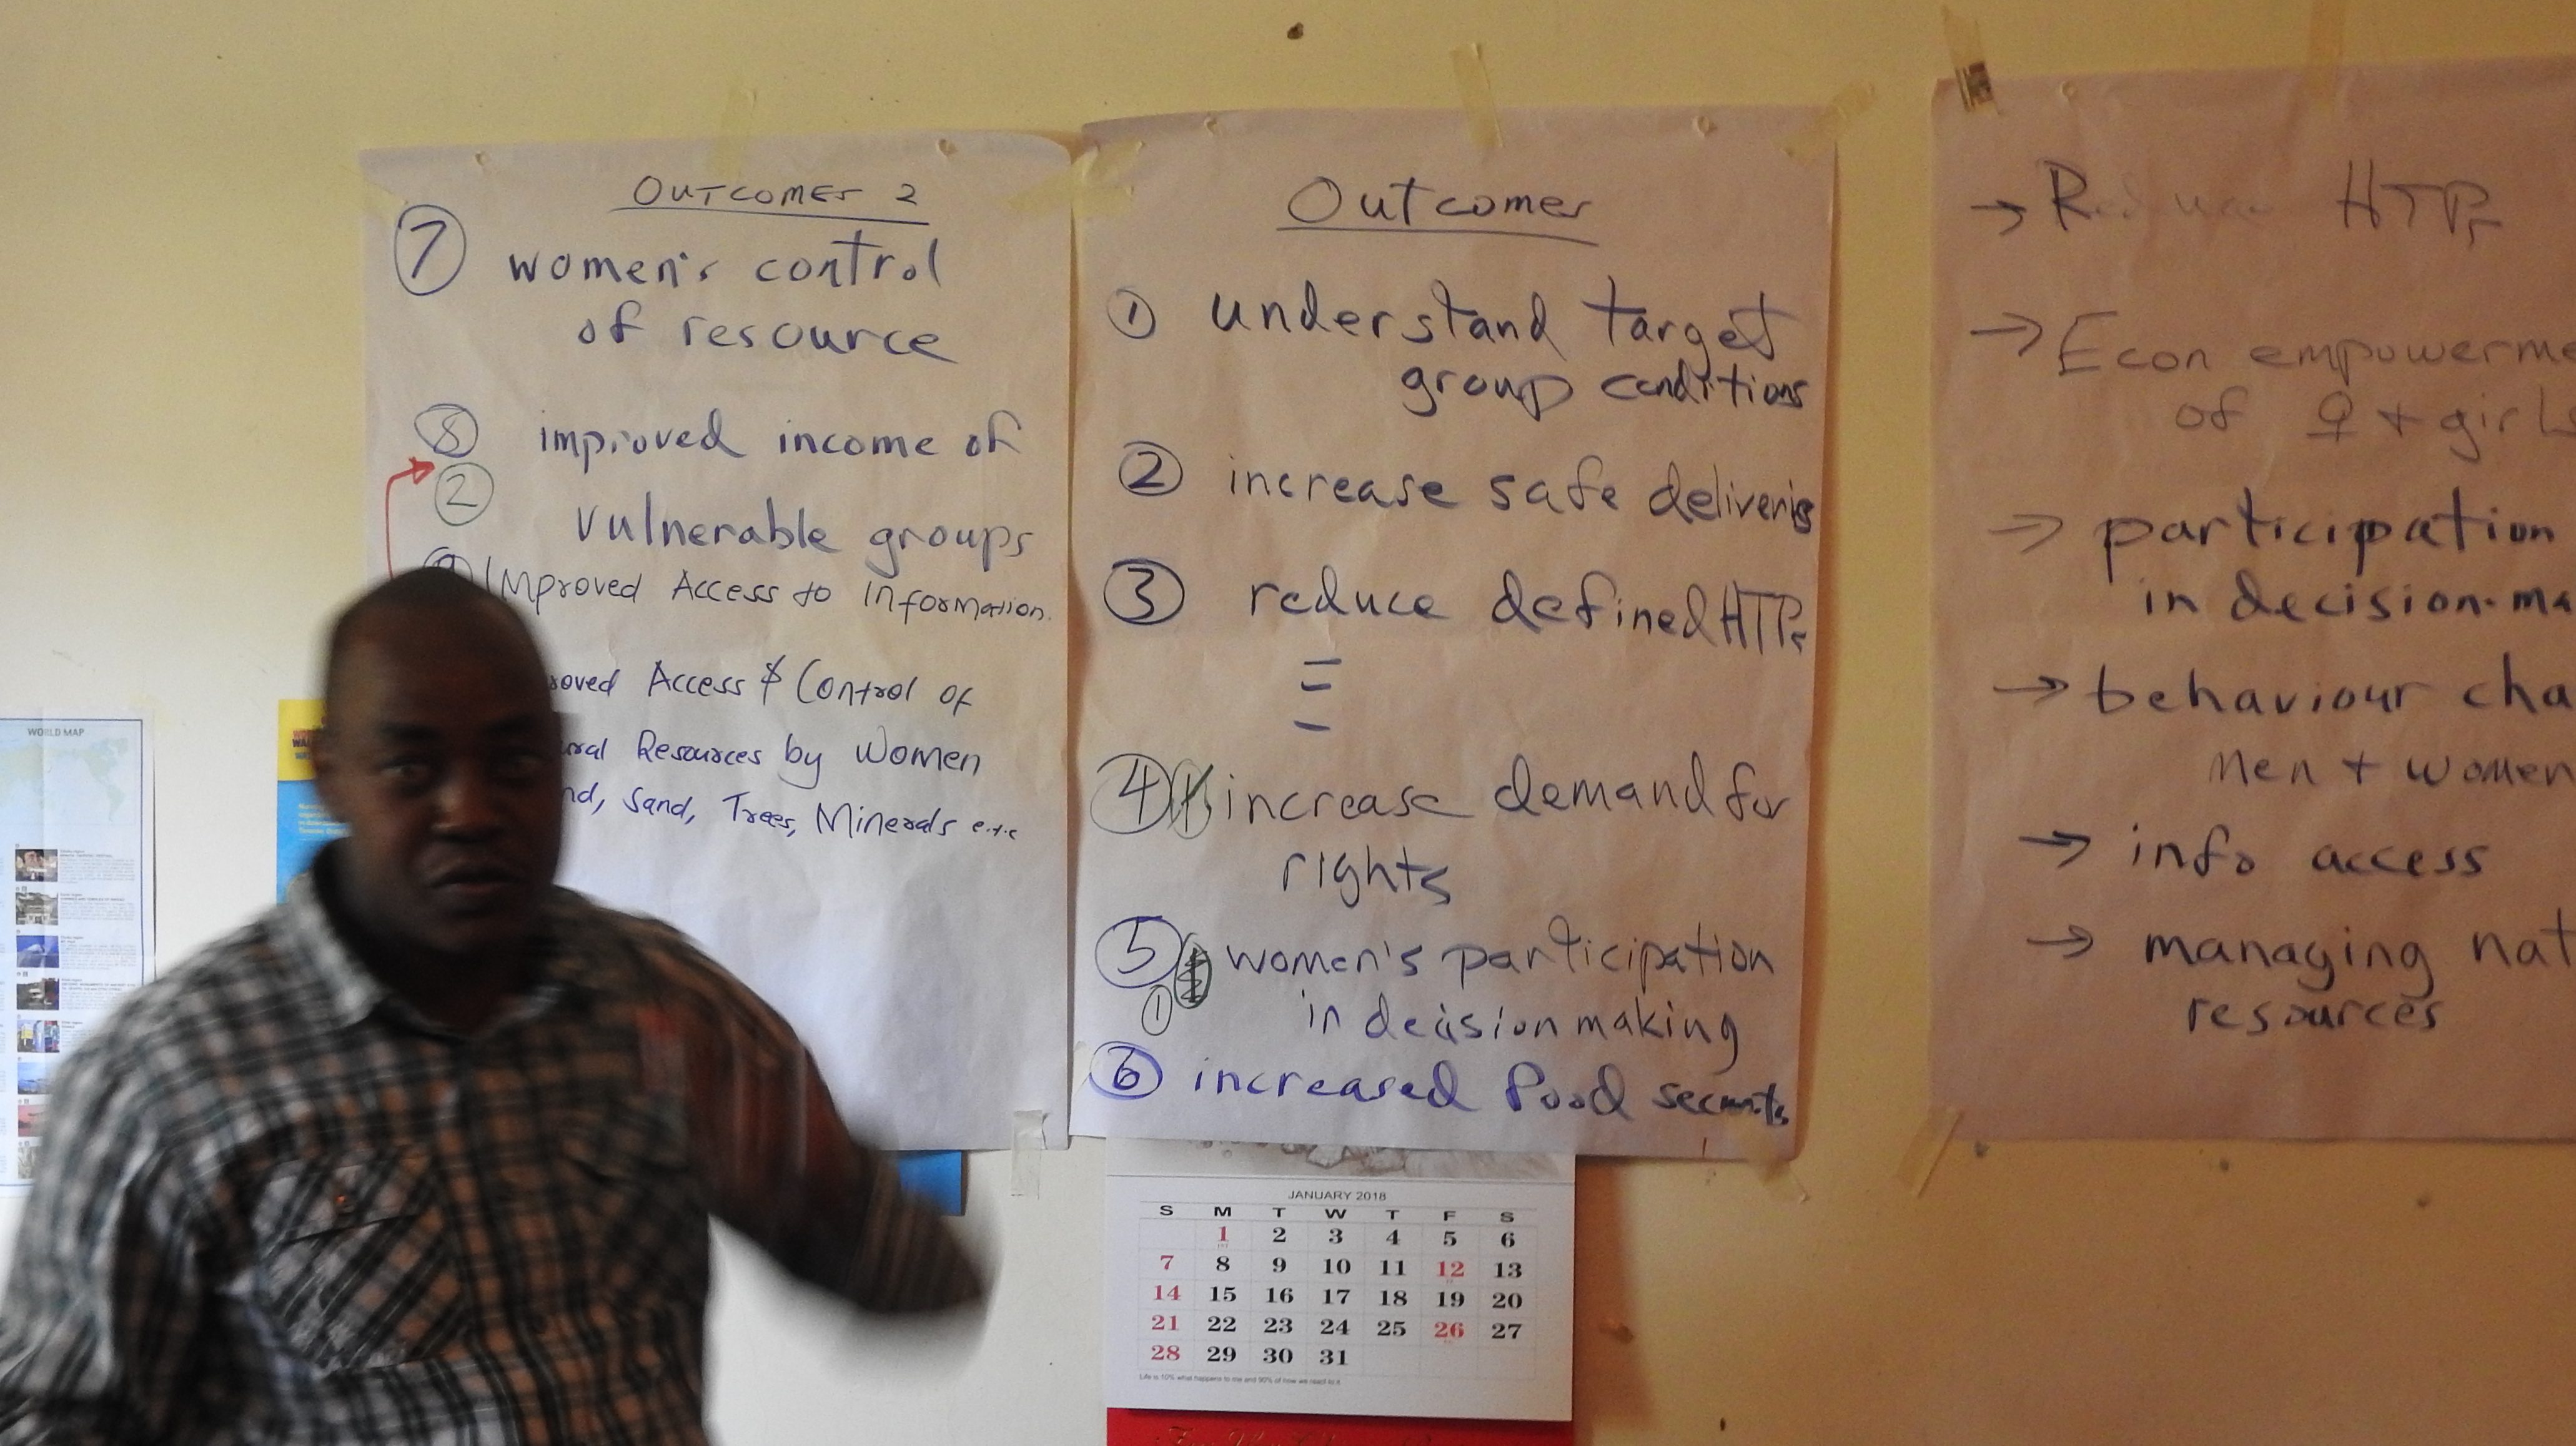 OUTCOMES 2
7 women's control
of resource
8 improved income of
2
vulnerable groups
Improved Access to Information.
roved Access & Control of
Resources by Women
nd, Sand, Trees, Minerals e.t.c
Outcomes
1 understand target
group conditions
2 increase safe deliveries
3 reduce defined HTPs
4 increase demand for
rights
5 women's participation
1 in decision making
6 increased food security
→ Reduce HTPs
→ Econ empowerme
of ♀ + girls
→ participation
in decision-ma
→ behaviour cha
men + women
→ info access
→ managing nat
resources
WORLD MAP
JANUARY 2018
S M T W T F S
1 2 3 4 5 6
7 8 9 10 11 12 13
14 15 16 17 18 19 20
21 22 23 24 25 26 27
28 29 30 31
Life is 10% what happens to me and 90% of how we react to it